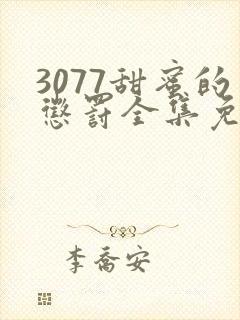 3077甜蜜的
惩罚全集免
李乔安